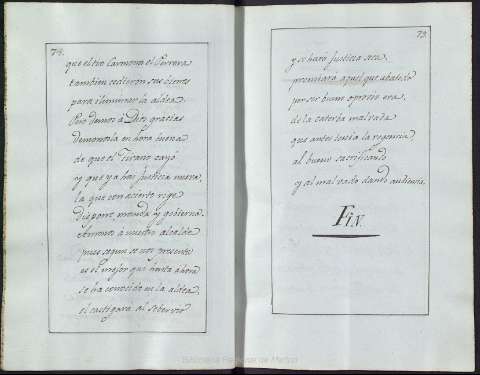 74.
que el tio Carmona el Herrera
tambien cedieron sus bienes
para iluminar la aldea.
Pero demos à Dios gracias
demoslas en hora buena
de que el Tirano cayó
y que ya hay justicia nueva,
la que con acierto rige
dispone, manda, y gobierna.
nuestro alcalde
pues segun se nos presenta
es el mejor que hasta ahora
se ha conocido en la aldea,
el castigará al sobervio
75.
y se hará justicia seca
premiará aquel que abatido
por ser buen oprimido era
de la caterba malvada
que antes tenia la regencia
al bueno sacrificando
y al malvado dando audiencia.
Fin.
Biblioteca Regional de Madrid